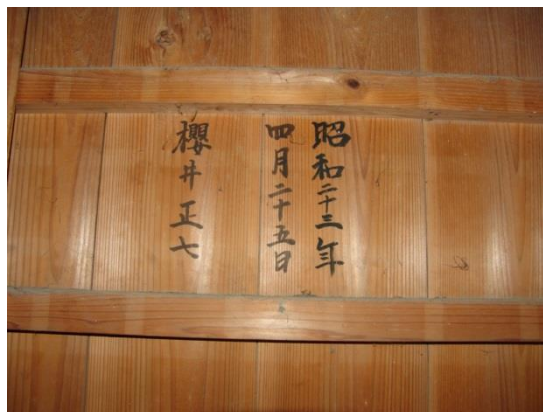 昭和二十三年
四月二十五日
櫻井正七